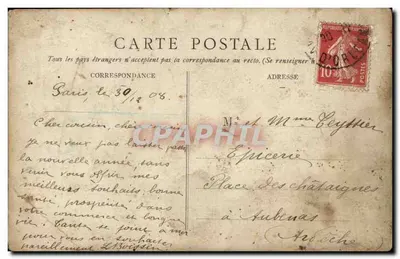 CARTE POSTALE
Tous les pays étrangers n'acceptent pas la correspondance au recto. (Se renseigner à
CORRESPONDANCE
ADRESSE
Paris, le 30/12 08
Cher cousin, chère
je ne veux pas laisser
la nouvelle année, sans
venir vous offrir mes
meilleurs souhaits, bonne
santé, prospérité dans
votre commerce et longue
vie. se joint à
pour vous en souhaiter
pareillement
Mr et Mme Teyssier
Epicerie
Place des châtaignes
à Aubenas
Ardèche
10
D'OR
CPAPHIL